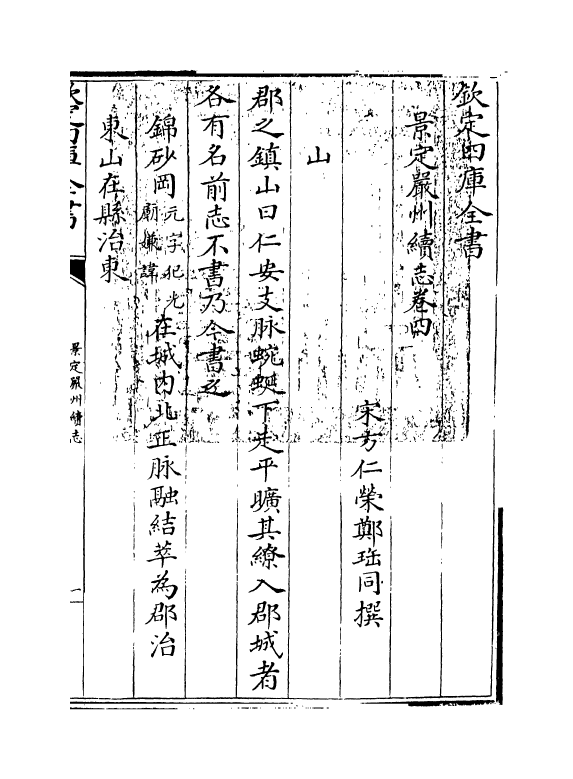 欽定四庫全書
景定嚴州續志卷四
宋方仁榮鄭珤同撰
山
郡之鎮山曰仁安支脉蜿蜒下走平曠其繚入郡城者
各有名前志不書乃今書之
錦砂岡元字犯光廟嫌諱在城内北正脉融結萃為郡治
東山在縣治東
欽定四庫全書
景定嚴州續志
一